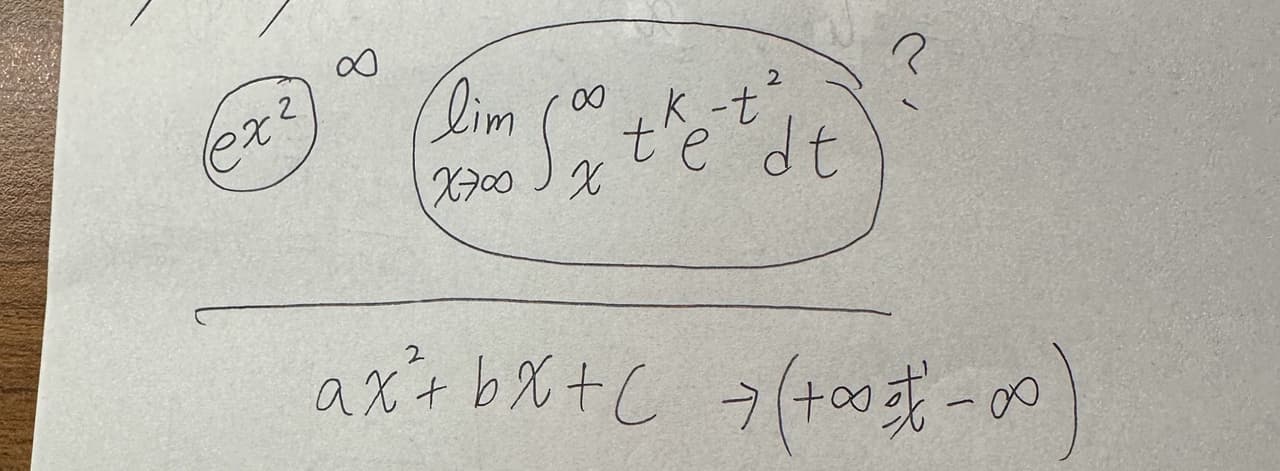 ex² ∞ lim x→∞ ∫ₓ^∞ tᵏe^-t² dt ?
ax²+bx+c → (+∞或-∞)